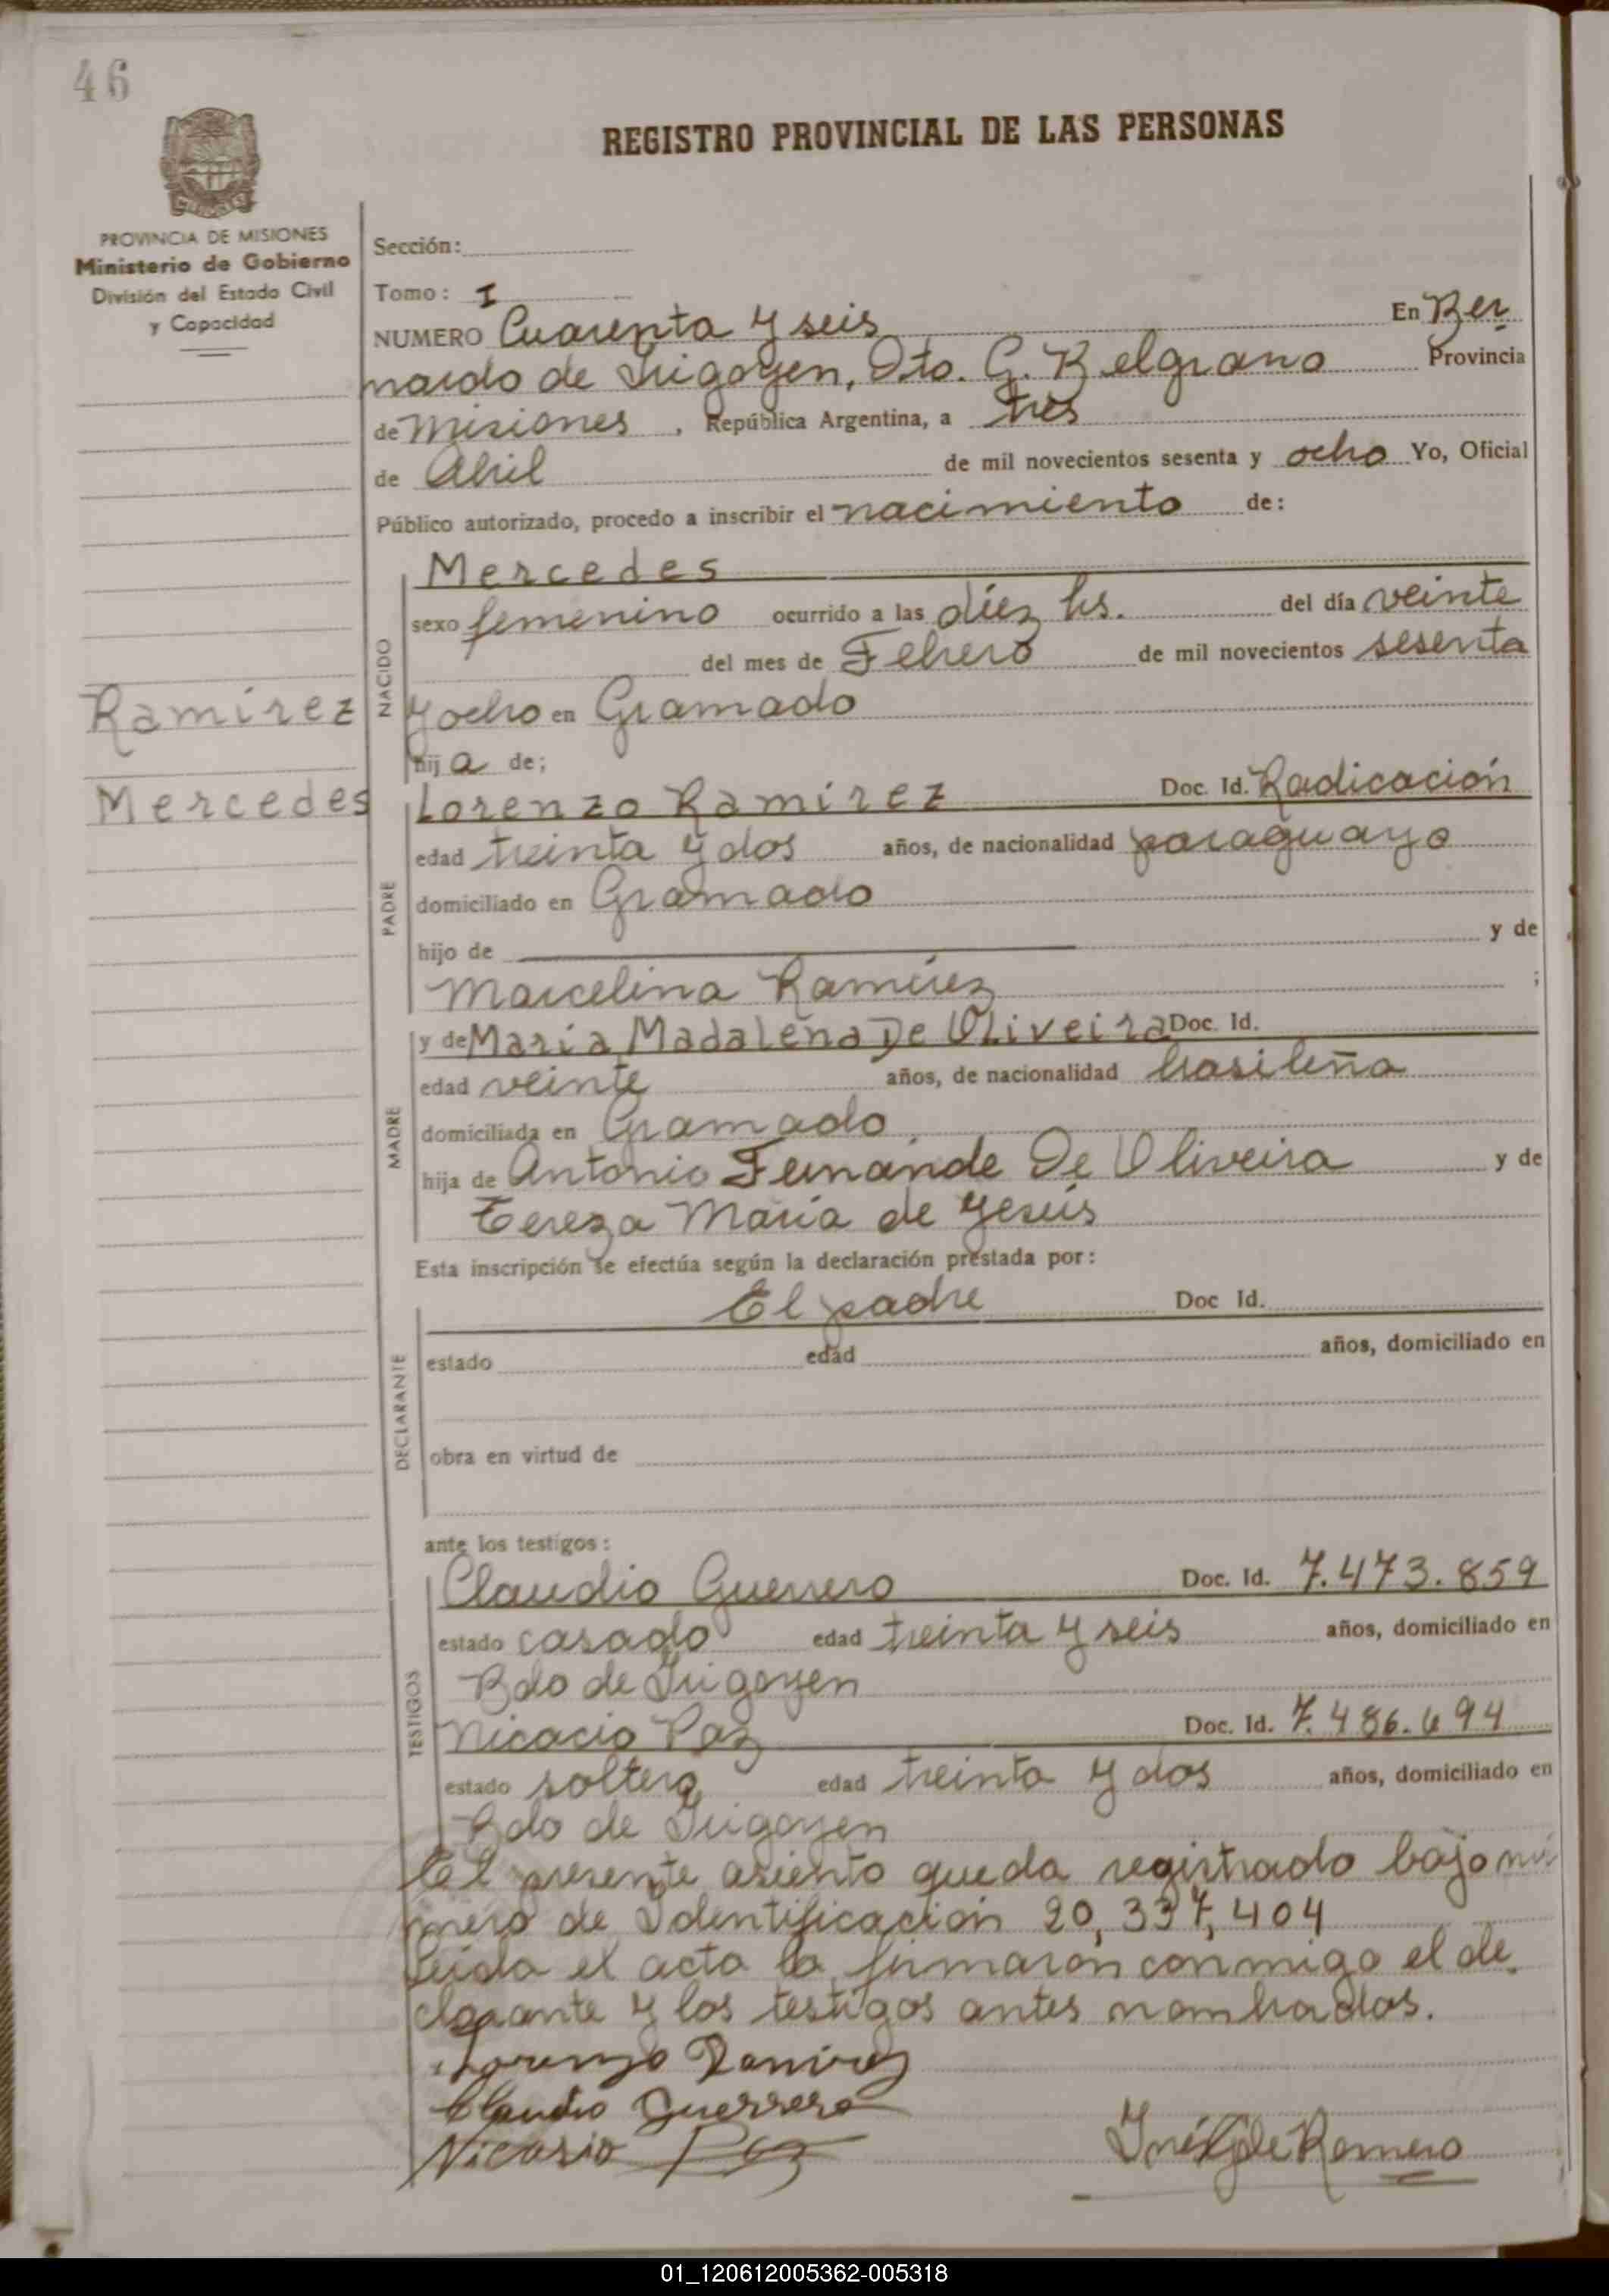 46
REGISTRO PROVINCIAL DE LAS PERSONAS
PROVINCIA DE MISIONES
Ministerio de Gobierno
División del Estado Civil
y Capacidad
Sección:
Tomo: I
NUMERO Cuarenta y seis En Ber
nardo de Irigoyen, Dto. G. Belgrano Provincia
de Misiones, República Argentina, a tres
de Abril de mil novecientos sesenta y ocho Yo, Oficial
Público autorizado, procedo a inscribir el nacimiento de:
NACIDO
Mercedes
sexo femenino ocurrido a las diez hs. del día veinte
del mes de Febrero de mil novecientos sesenta
y ocho en Gramado
hija de;
Ramírez
Mercedes
PADRE
Lorenzo Ramírez Doc. Id. Radicación
edad treinta y dos años, de nacionalidad paraguayo
domiciliado en Gramado
hijo de y de
Marcelina Ramírez ;
MADRE
y de María Madalena De Oliveira Doc. Id.
edad veinte años, de nacionalidad brasileña
domiciliada en Gramado
hija de Antonio Fernánde De Oliveira y de
Tereza María de Jesús
Esta inscripción se efectúa según la declaración prestada por:
DECLARANTE
El padre Doc Id.
estado edad años, domiciliado en
obra en virtud de
ante los testigos:
TESTIGOS
Claudio Guerrero Doc. Id. 7.473.859
estado casado edad treinta y seis años, domiciliado en
Bdo de Irigoyen
Nicacio Paz Doc. Id. 7.486.694
estado soltero edad treinta y dos años, domiciliado en
Bdo de Irigoyen
El presente asiento queda registrado bajo nú
mero de Identificación 20,337,404
Leída el acta la firmaron conmigo el de
clarante y los testigos antes nombrados.
Lorenzo Ramirez
Claudio Guerrero
Nicasio Paz
de Romero
01_120612005362-005318